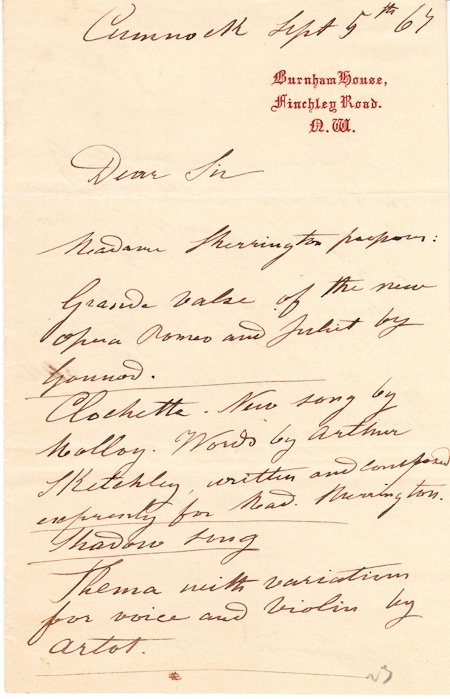 Cumnock Sept 5th 67
Burnham House,
Finchley Road.
N.W.
Dear Sir
Madame Sherrington proposes:
Grande Valse of the new
opera Romeo and Juliet by
Gounod.
Clochette. New song by
Molloy. Words by Arthur
Sketchley, written and composed
expressly for Mad. Sherrington.
Shadow Song
Thema with variations
for voice and violin by
Artot.